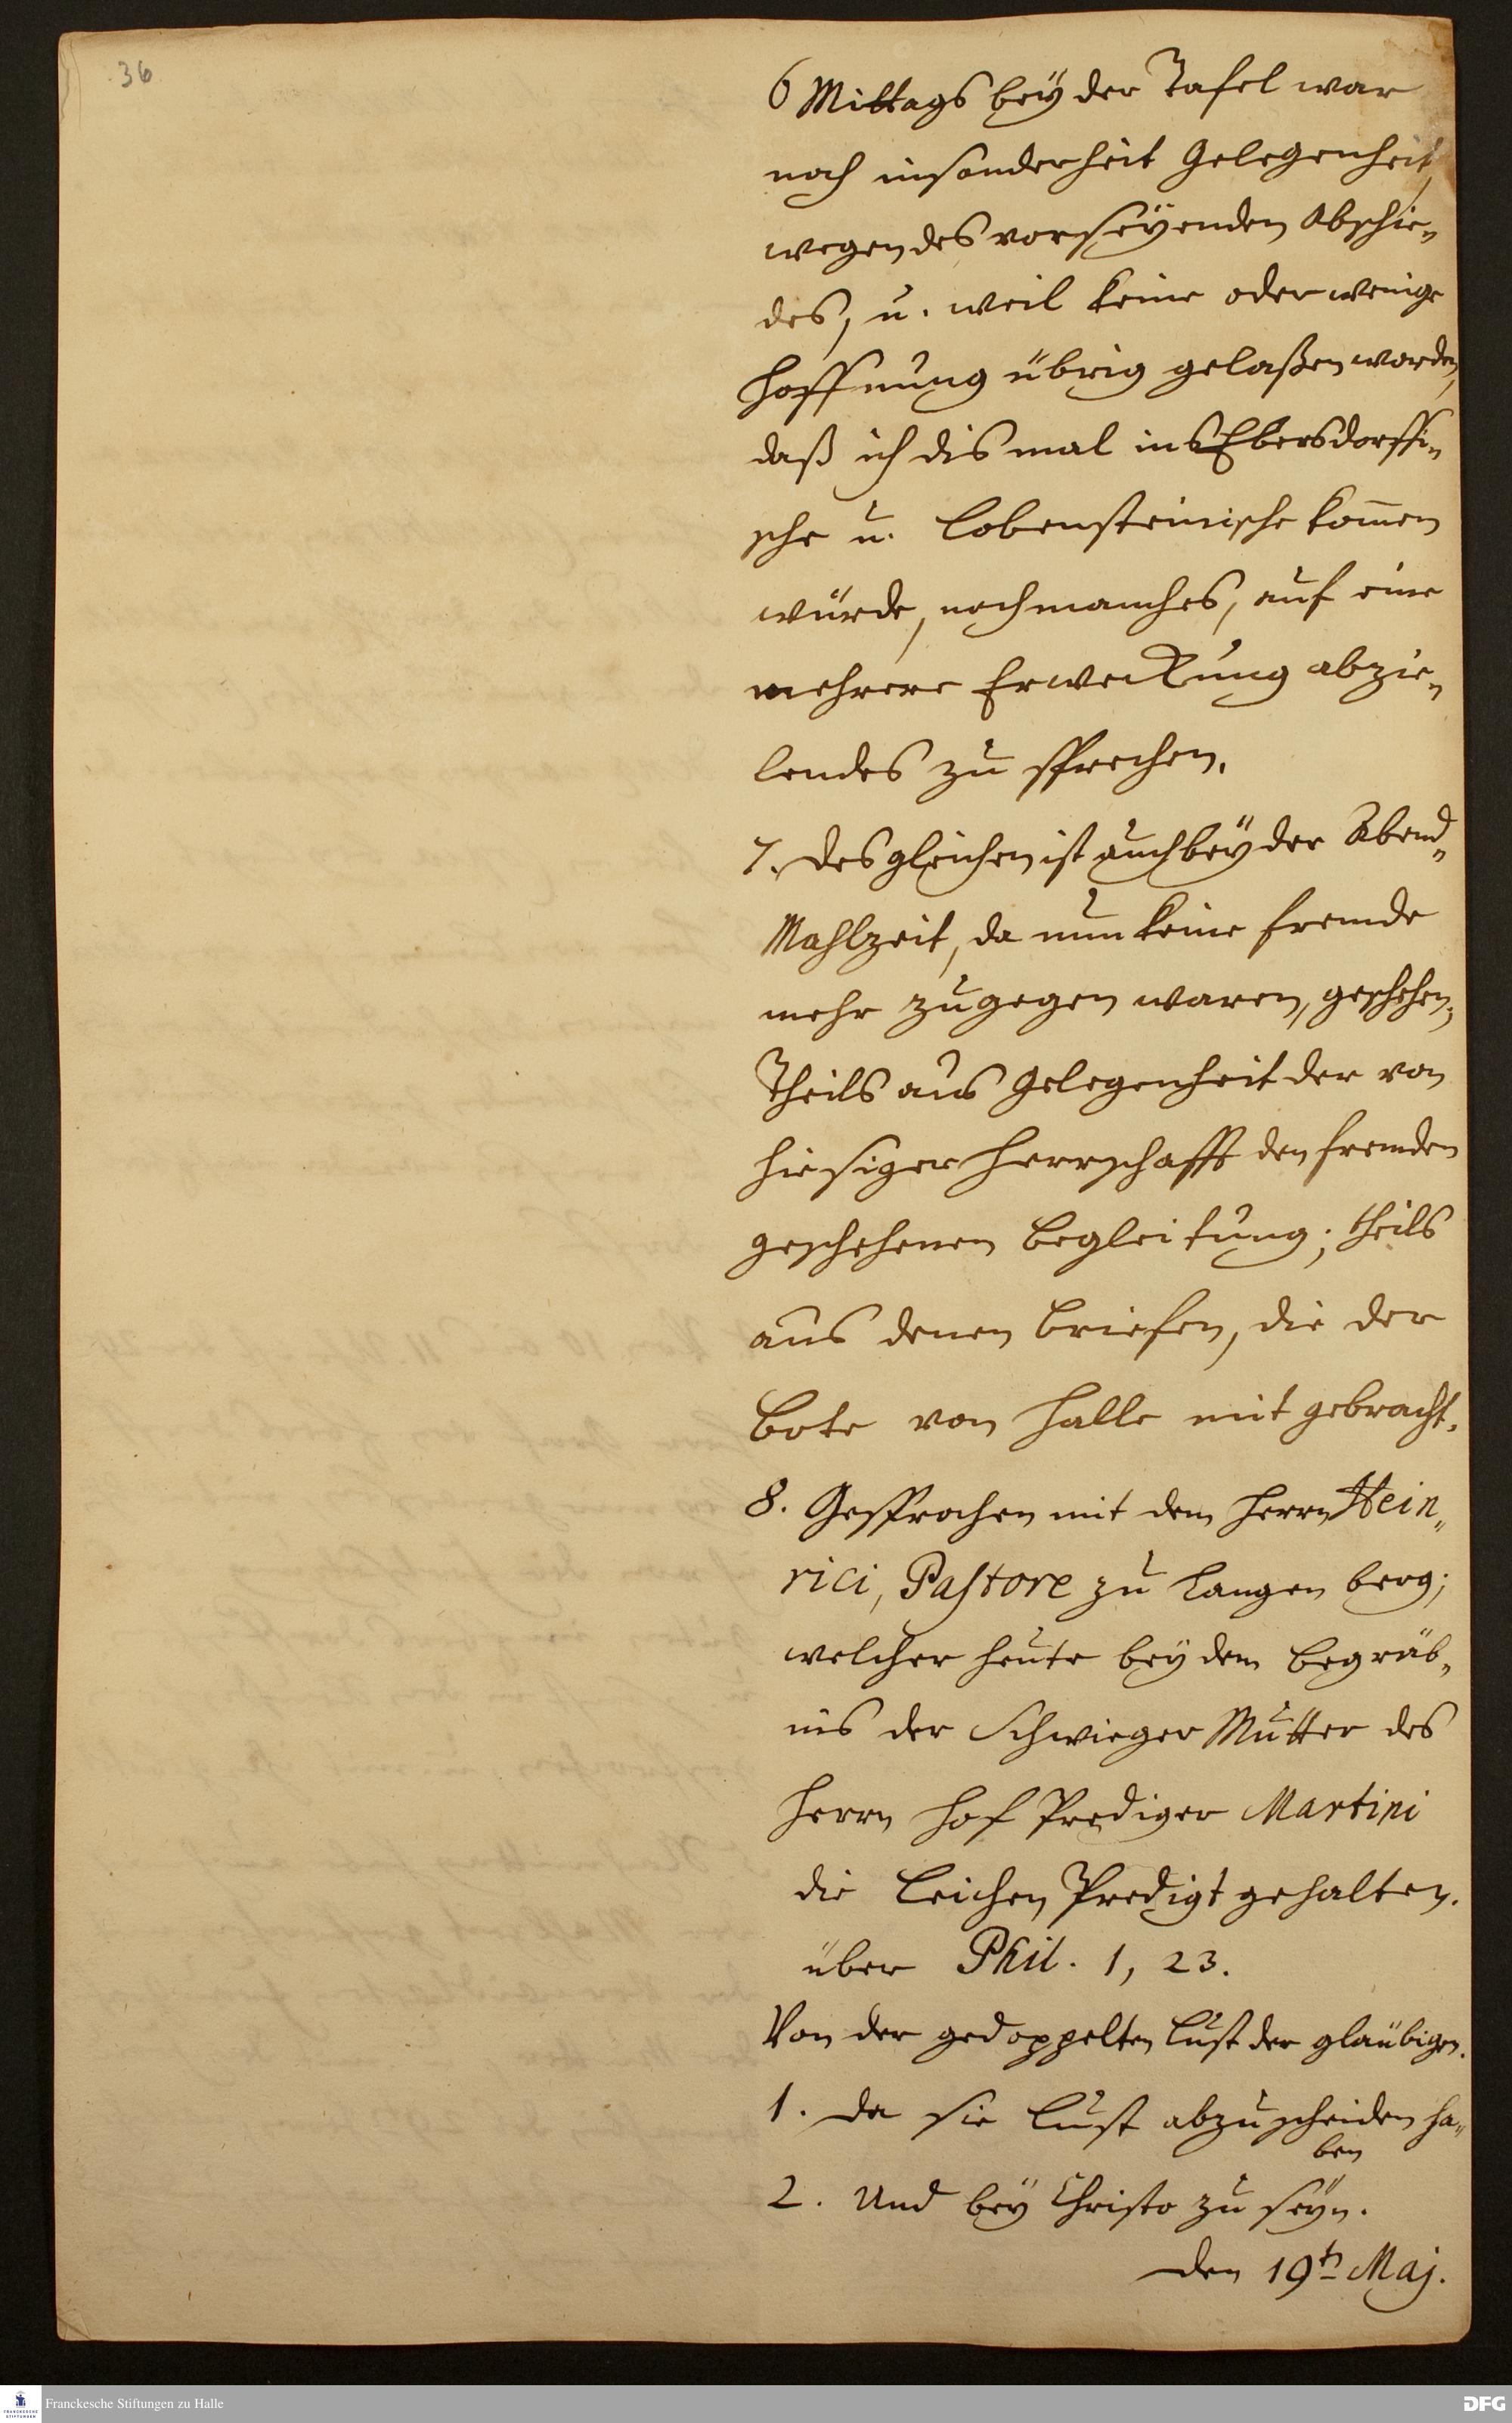 36
6 Mittags bey der Tafel war
noch insonderheit Gelegenheit,
wegen des vorseyenden Abschie„
des, u. weil keine oder wenige
Hoffnung übrig gelaßen worden,
daß ich dismal ins Ebersdorffi„
sche u. Lobensteinische kom̅en
würde, noch manches, auf eine
mehrere Erweckung abzie„
lendes zu sprechen.
7. Desgleichen ist auch bey der Abend„
Mahlzeit, da nun keine fremde
mehr zugegen waren, geschehen;
Theils aus Gelegenheit der von
hiesiger Herrschafft den fremden
geschehenen Begleitung; theils
aus denen Briefen, die der
Bote von Halle mit gebracht.
8. Gesprochen mit dem Herrn Hein„
rici, Pastore zu Langenberg;
welcher heute bey dem Begräb„
nis der Schwieger Mutter des
Herrn Hof Prediger Martini
die Leichen Predigt gehalten.
über Phil. 1, 23.
Von der gedoppelten Lust der gläubigen.
1. Da sie Lust abzuscheiden ha„
ben
2. Und bey Christo zu seyn.
Den 19tn Maj.
Franckesche Stiftungen zu Halle
DFG